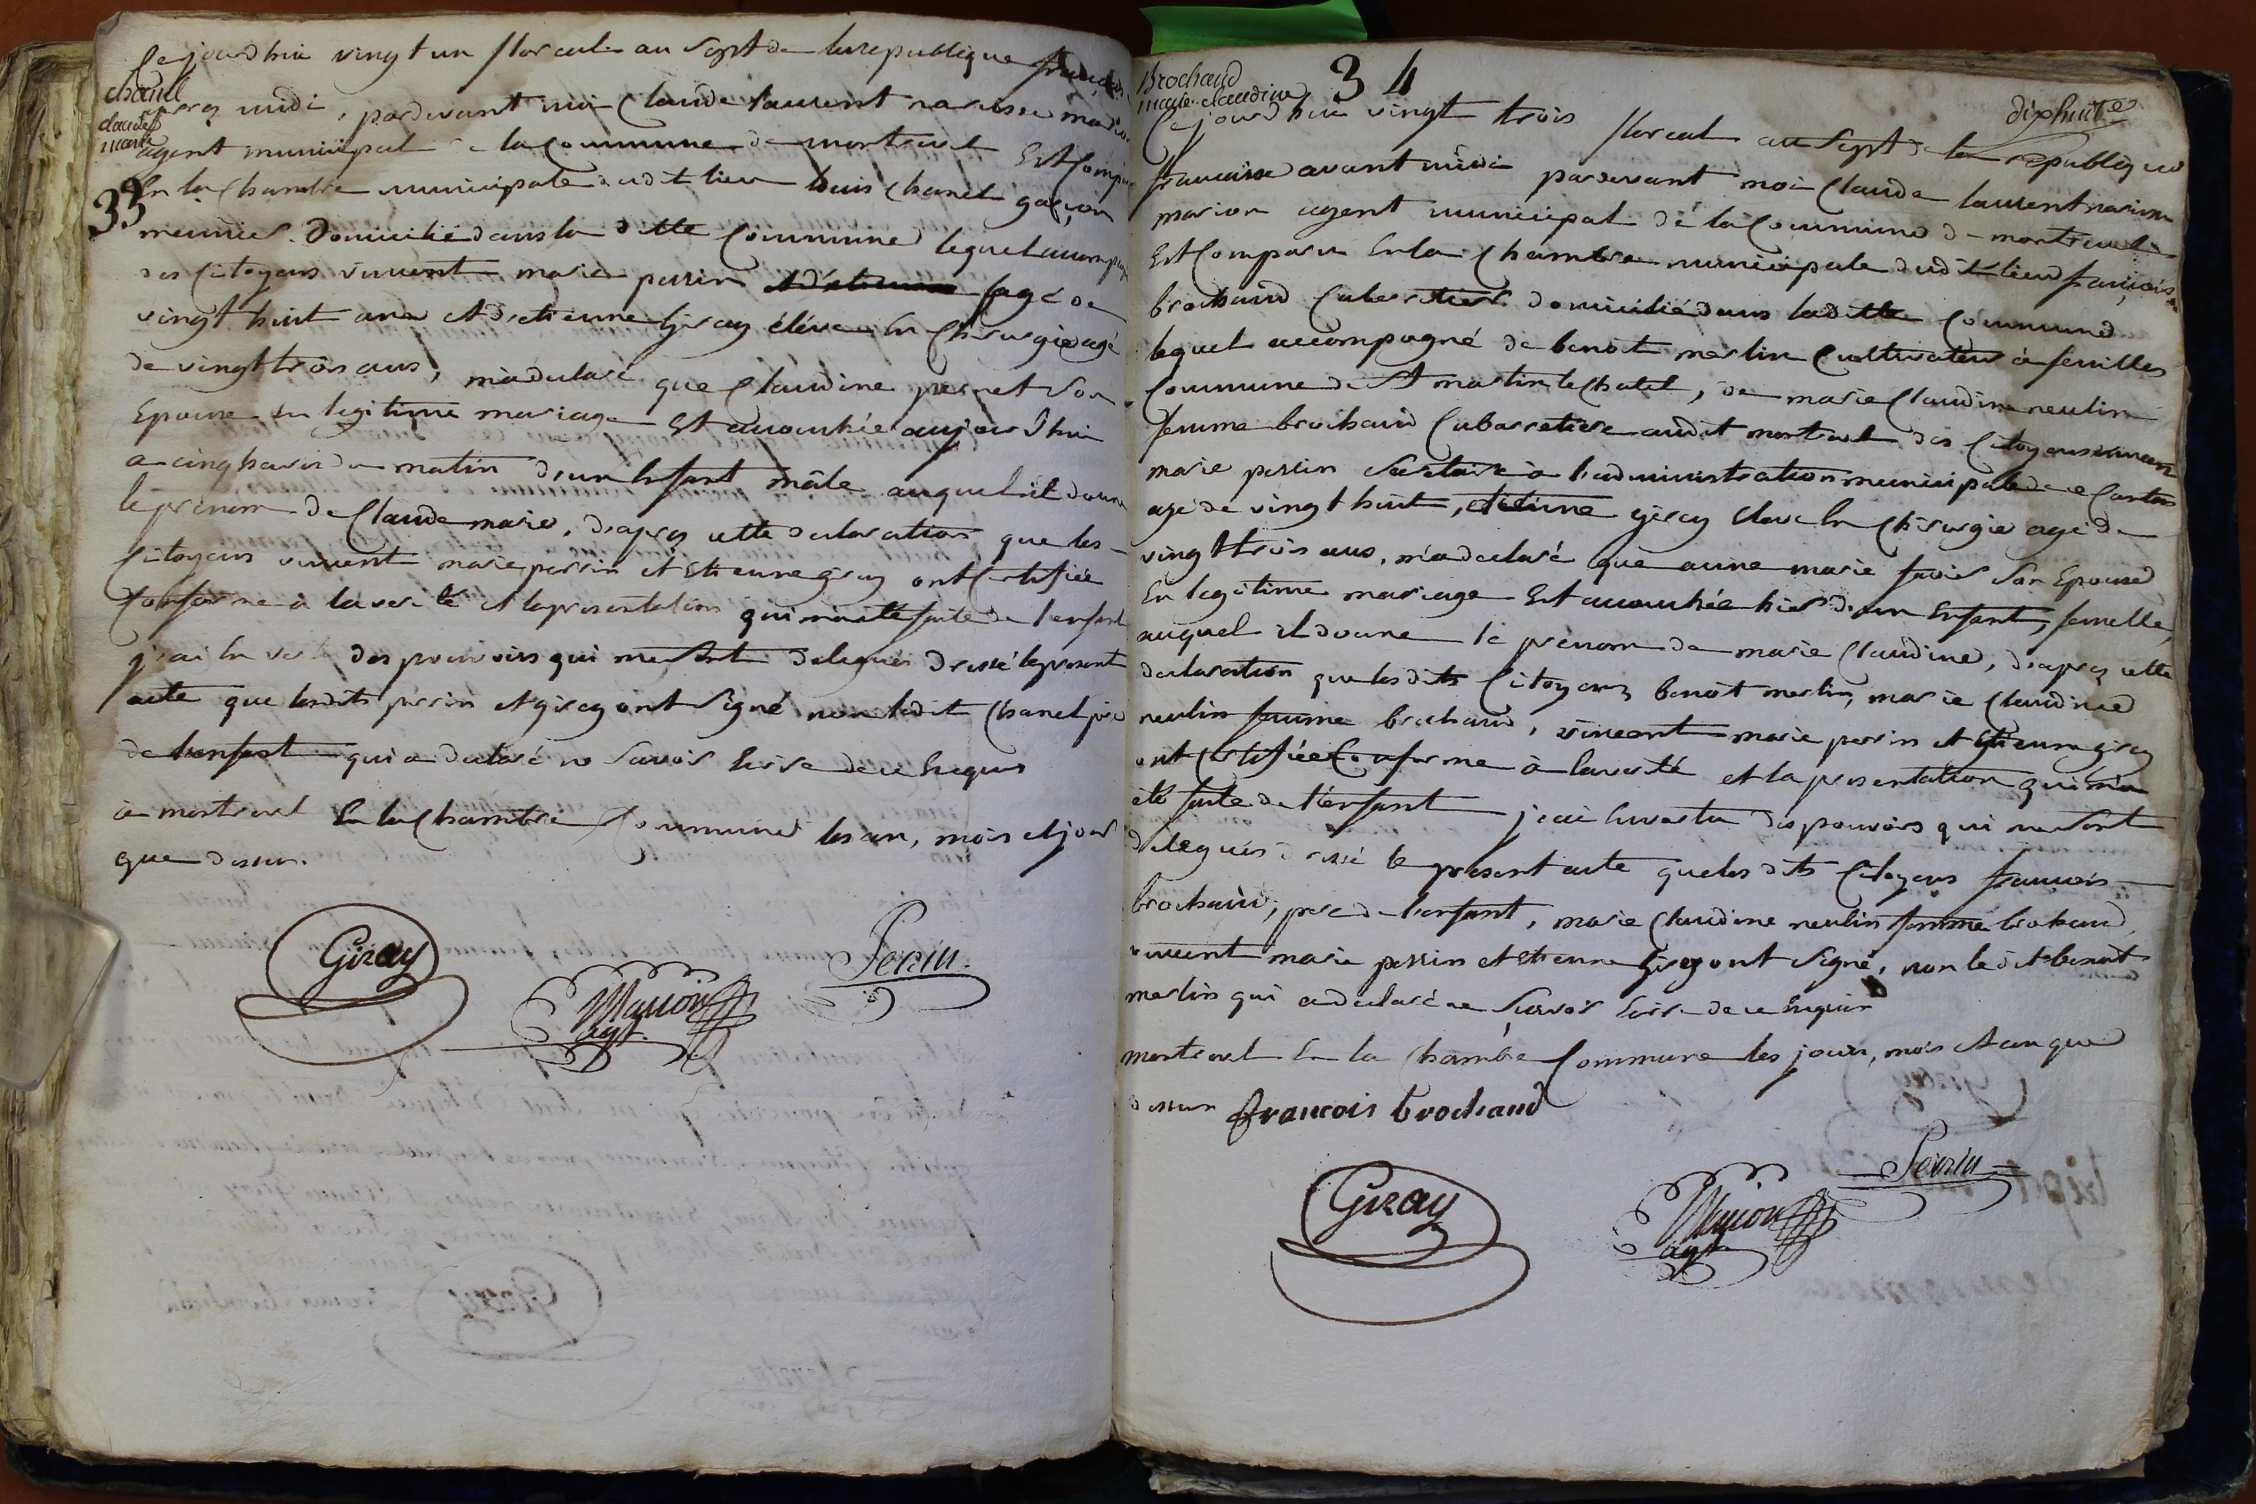 Cejourdhui vingt un floreal an Sept de la republique francaise
chanel
claude
marie
apres midi, pardevant moi Claude laurent narcisse marion
agent municipal de la Commune de montrevel Est Comparu
33
En la Chambre municipale dudit lieu louis Chanel garçon
meunier Domicilié dans la ditte Commune lequel accompagné
des Citoyens vincent marie perrin agé de
vingt huit ans et d'etienne giray élève en Chirurgie agé
de vingt trois ans, m'a declaré que Claudine pernet Son
Epouse en legitime mariage Est accouchée aujourd'hui
a cinq heures du matin d'un Enfant mâle auquel il donne
le prenom de Claude marie, d'apres cette declaration que les
Citoyens vincent marie perrin et Etienne giray ont Certifiée
Conforme à la verité et la presentation qui m'a eté faite de l'enfant
j'ai En vertu des pouvoirs qui me Sont delegués dressé le present
acte que lesdits perrin et giray ont Signé non ledit Chanel pere
de l'enfant qui a declaré ne Savoir Ecrire de ce Enquis
à montrevel En la Chambre Commune les an, mois et jour
que dessus.
Giray
Marion
agt.
Perrin
Brochand
marie claudine
34
dixhuit
Cejourd'hui vingt trois floreal an Sept de la republique
francaise avant midi pardevant moi Claude laurent narcisse
marion agent municipal de la Commune de montrevel
Est Comparu En la Chambre municipale dudit lieu francois
brochand Cabaretier domicilié dans laditte Commune
lequel accompagné de benoit merlin Cultivateur à
Commune de St martin le Chatel, de marie Claudine neulin
femme brochand Cabaretiere audit montrevel des Citoyens vincent
marie perrin Secretaire à l'administration municipale de ce Canton
agé de vingt huit, etienne giray eleve En Chirurgie agé de
vingt trois ans, m'a declaré que anne marie Son Epouse
En legitime mariage Est accouchée hier d'un Enfant, femelle,
auquel il donne le prenom de marie Claudine, d'apres cette
declaration que lesdits Citoyens benoit merlin, marie Claudine
neulin femme brochand, vincent marie perrin et Etienne giray
ont Certifiée Conforme à la verité et la presentation qui m'a
été faite de l'enfant j'ai En vertu des pouvoirs qui me Sont
delegués dressé le present acte que les dits Citoyens francois
brochand, pere de l'enfant, marie Claudine neulin femme brochand,
vincent marie perrin et Etienne giray ont Signé, non le dit benoit
merlin qui a declaré ne Savoir Ecrire de ce Enquis
montrevel En la Chambre Commune les jour, mois et an que
dessus
francois brochand
Giray
Marion
agt
Perrin